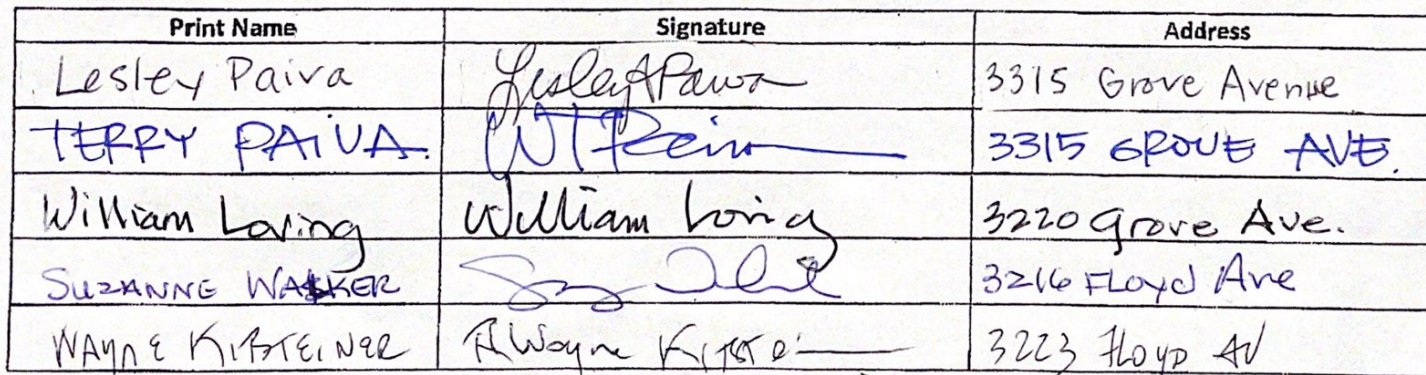 Print Name Signature Address
Lesley Paiva Lesley A Paiva 3315 Grove Avenue
TERRY PAIVA. WT Paiva 3315 GROVE AVE.
William Loving William Loving 3220 Grove Ave.
SUZANNE WALKER 3216 FLoyd Ave
WAYNE 3223 FLOYD AV